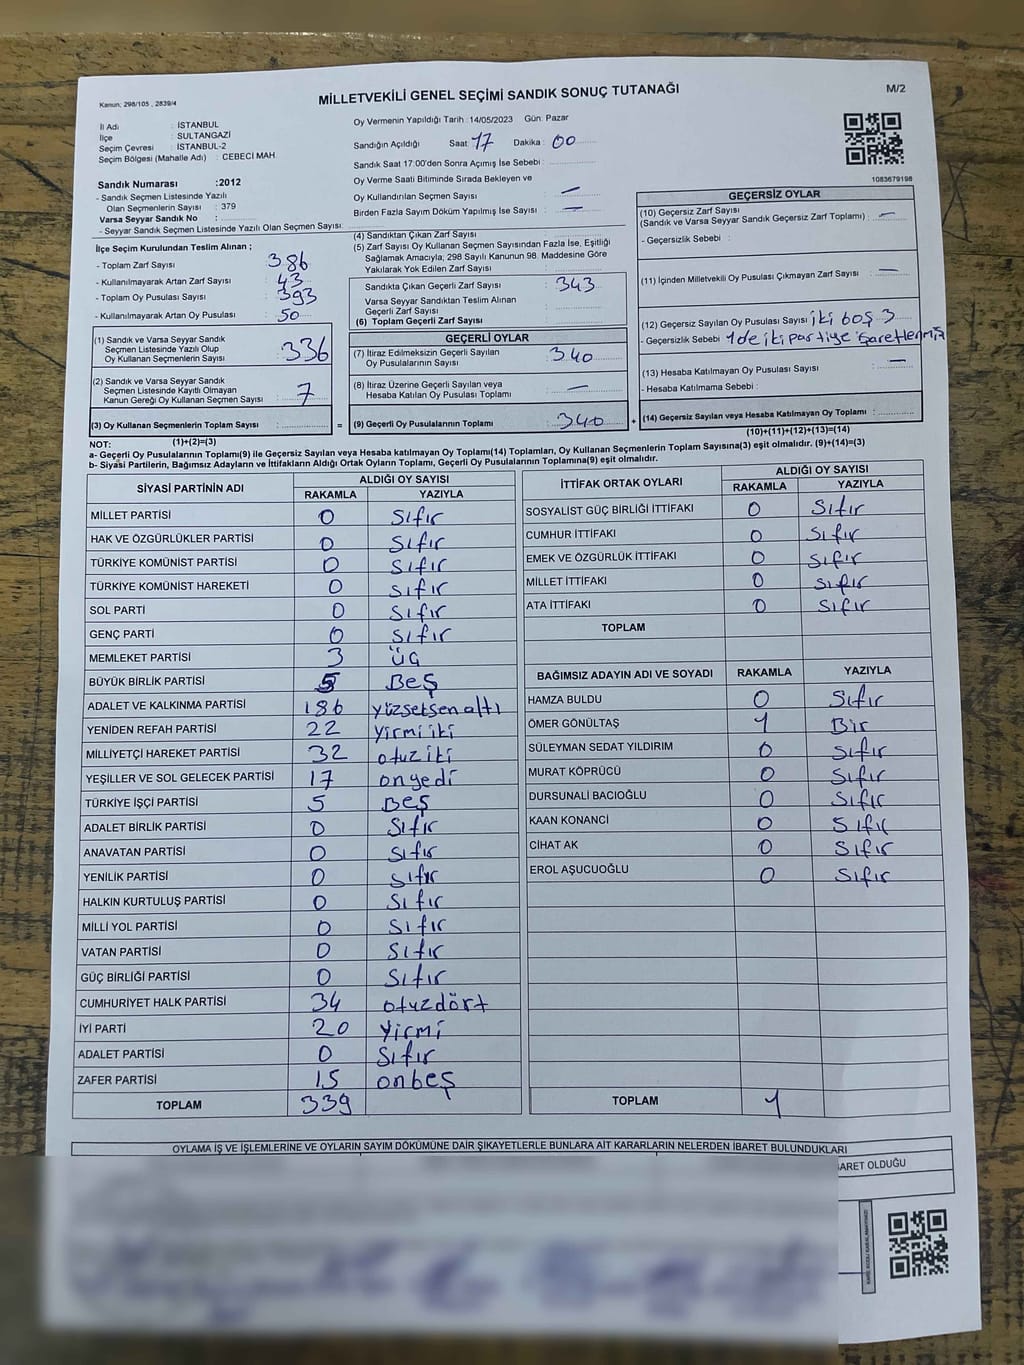 Kanun; 298/105 , 2839/4
MİLLETVEKİLİ GENEL SEÇİMİ SANDIK SONUÇ TUTANAĞI
M/2
İl Adı : İSTANBUL
İlçe : SULTANGAZİ
Seçim Çevresi : İSTANBUL-2
Seçim Bölgesi (Mahalle Adı) : CEBECİ MAH
Oy Vermenin Yapıldığı Tarih :14/05/2023 Gün: Pazar
Sandığın Açıldığı Saat: 17 Dakika: 00
Sandık Saat 17:00'den Sonra Açımış İse Sebebi :
Sandık Numarası :2012
- Sandık Seçmen Listesinde Yazılı
Olan Seçmenlerin Sayısı : 379
Varsa Seyyar Sandık No :
- Seyyar Sandık Seçmen Listesinde Yazılı Olan Seçmen Sayısı:
Oy Verme Saati Bitiminde Sırada Bekleyen ve
Oy Kullandırılan Seçmen Sayısı : —
Birden Fazla Sayım Döküm Yapılmış İse Sayısı : —
1083679198
İlçe Seçim Kurulundan Teslim Alınan ;
- Toplam Zarf Sayısı : 386
- Kullanılmayarak Artan Zarf Sayısı : 43
- Toplam Oy Pusulası Sayısı : 393
- Kullanılmayarak Artan Oy Pusulası : 50
(1) Sandık ve Varsa Seyyar Sandık
Seçmen Listesinde Yazılı Olup
Oy Kullanan Seçmenlerin Sayısı : 336
(2) Sandık ve Varsa Seyyar Sandık
Seçmen Listesinde Kayıtlı Olmayan
Kanun Gereği Oy Kullanan Seçmen Sayısı : 7
(3) Oy Kullanan Seçmenlerin Toplam Sayısı :
(4) Sandıktan Çıkan Zarf Sayısı :
(5) Zarf Sayısı Oy Kullanan Seçmen Sayısından Fazla İse, Eşitliği
Sağlamak Amacıyla; 298 Sayılı Kanunun 98. Maddesine Göre
Yakılarak Yok Edilen Zarf Sayısı :
Sandıkta Çıkan Geçerli Zarf Sayısı : 343
Varsa Seyyar Sandıktan Teslim Alınan
Geçerli Zarf Sayısı :
(6) Toplam Geçerli Zarf Sayısı :
GEÇERLİ OYLAR
(7) İtiraz Edilmeksizin Geçerli Sayılan
Oy Pusulalarının Sayısı : 340
(8) İtiraz Üzerine Geçerli Sayılan veya
Hesaba Katılan Oy Pusulası Toplamı : —
= (9) Geçerli Oy Pusulalarının Toplamı : 340 +
GEÇERSİZ OYLAR
(10) Geçersiz Zarf Sayısı
(Sandık ve Varsa Seyyar Sandık Geçersiz Zarf Toplamı) : —
- Geçersizlik Sebebi :
(11) İçinden Milletvekili Oy Pusulası Çıkmayan Zarf Sayısı : —
(12) Geçersiz Sayılan Oy Pusulası Sayısı : iki boş 3
- Geçersizlik Sebebi : 1 de iki partiye işaretlenmiş
(13) Hesaba Katılmayan Oy Pusulası Sayısı : —
- Hesaba Katılmama Sebebi :
(14) Geçersiz Sayılan veya Hesaba Katılmayan Oy Toplamı :
NOT: (1)+(2)=(3)
(10)+(11)+(12)+(13)=(14)
a- Geçerli Oy Pusulalarının Toplamı(9) ile Geçersiz Sayılan veya Hesaba katılmayan Oy Toplamı(14) Toplamları, Oy Kullanan Seçmenlerin Toplam Sayısına(3) eşit olmalıdır. (9)+(14)=(3)
b- Siyasi Partilerin, Bağımsız Adayların ve İttifakların Aldığı Ortak Oyların Toplamı, Geçerli Oy Pusulalarının Toplamına(9) eşit olmalıdır.
SİYASİ PARTİNİN ADI ALDIĞI OY SAYISI
RAKAMLA YAZIYLA
MİLLET PARTİSİ 0 Sıfır
HAK VE ÖZGÜRLÜKLER PARTİSİ 0 Sıfır
TÜRKİYE KOMÜNİST PARTİSİ 0 Sıfır
TÜRKİYE KOMÜNİST HAREKETİ 0 Sıfır
SOL PARTİ 0 Sıfır
GENÇ PARTİ 0 Sıfır
MEMLEKET PARTİSİ 3 üç
BÜYÜK BİRLİK PARTİSİ 5 Beş
ADALET VE KALKINMA PARTİSİ 186 yüzseksenaltı
YENİDEN REFAH PARTİSİ 22 Yirmi iki
MİLLİYETÇİ HAREKET PARTİSİ 32 otuz iki
YEŞİLLER VE SOL GELECEK PARTİSİ 17 onyedi
TÜRKİYE İŞÇİ PARTİSİ 5 Beş
ADALET BİRLİK PARTİSİ 0 Sıfır
ANAVATAN PARTİSİ 0 Sıfır
YENİLİK PARTİSİ 0 Sıfır
HALKIN KURTULUŞ PARTİSİ 0 Sıfır
MİLLİ YOL PARTİSİ 0 Sıfır
VATAN PARTİSİ 0 Sıfır
GÜÇ BİRLİĞİ PARTİSİ 0 Sıfır
CUMHURİYET HALK PARTİSİ 34 otuzdört
İYİ PARTİ 20 Yirmi
ADALET PARTİSİ 0 Sıfır
ZAFER PARTİSİ 15 onbeş
TOPLAM 339
İTTİFAK ORTAK OYLARI ALDIĞI OY SAYISI
RAKAMLA YAZIYLA
SOSYALİST GÜÇ BİRLİĞİ İTTİFAKI 0 Sıfır
CUMHUR İTTİFAKI 0 Sıfır
EMEK VE ÖZGÜRLÜK İTTİFAKI 0 Sıfır
MİLLET İTTİFAKI 0 Sıfır
ATA İTTİFAKI 0 Sıfır
TOPLAM
BAĞIMSIZ ADAYIN ADI VE SOYADI RAKAMLA YAZIYLA
HAMZA BULDU 0 Sıfır
ÖMER GÖNÜLTAŞ 1 Bir
SÜLEYMAN SEDAT YILDIRIM 0 Sıfır
MURAT KÖPRÜCÜ 0 Sıfır
DURSUNALİ BACIOĞLU 0 Sıfır
KAAN KONANCİ 0 Sıfır
CİHAT AK 0 Sıfır
EROL AŞUCUOĞLU 0 Sıfır
TOPLAM 1
OYLAMA İŞ VE İŞLEMLERİNE VE OYLARIN SAYIM DÖKÜMÜNE DAİR ŞİKAYETLERLE BUNLARA AİT KARARLARIN NELERDEN İBARET BULUNDUKLARI
OLDUĞU